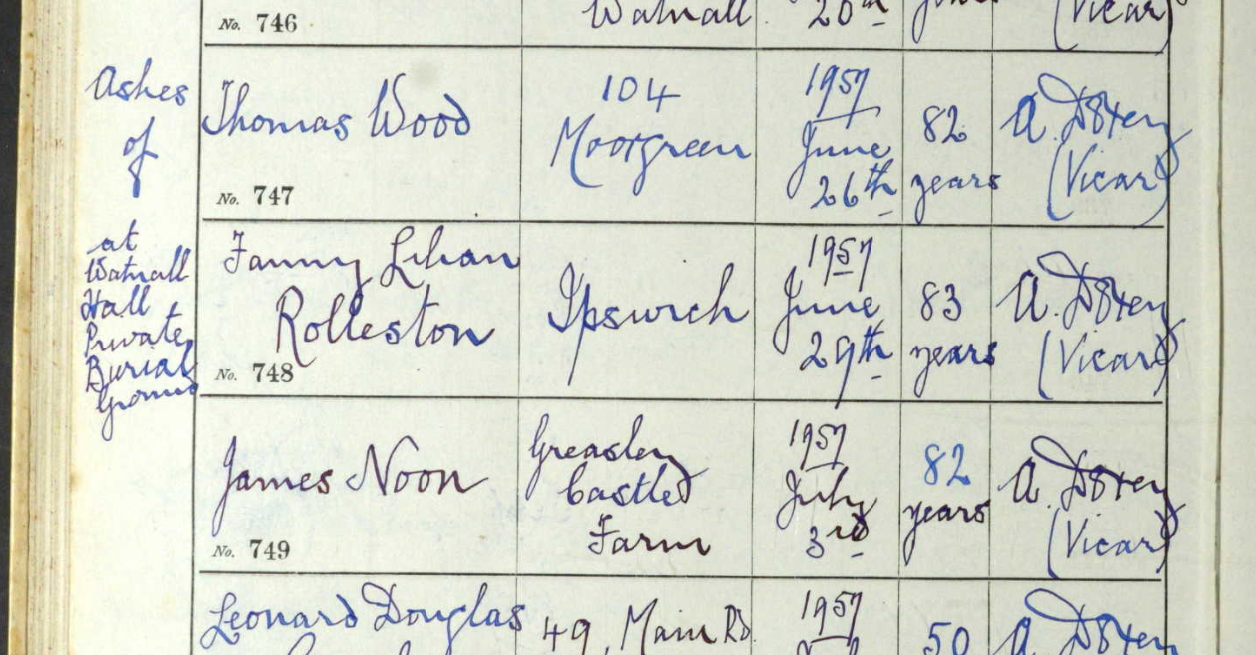 Watnall
20th
(Vicar)
No. 746
Ashes
of
Thomas Wood
No. 747
104
Moorgreen
1957
June
26th
82
years
A.
(Vicar)
at
Watnall
Hall
Private
Burial
Ground
Fanny Lilian
Rolleston
No. 748
Ipswich
1957
June
29th
83
years
A.
(Vicar)
James Noon
No. 749
Greasley
Castle
Farm
1957
July
3rd
82
years
A.
(Vicar)
Leonard Douglas
49, Main Rd.
1957
50
A.